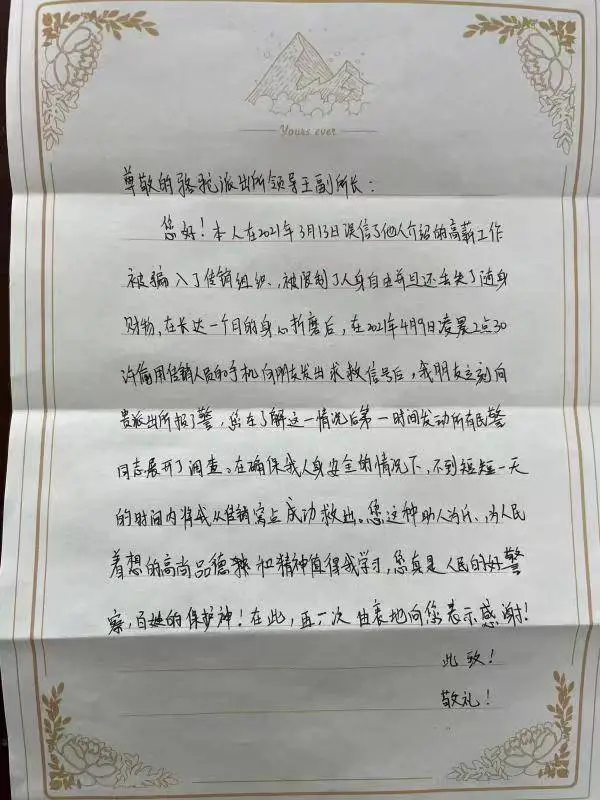 Yours ever
尊敬的骆驼派出所领导王副所长：
您好！本人在2021年3月13日误信了他人介绍的高薪工作
被骗入了传销组织、被限制了人身自由并且还丢失了随身
财物，在长达一个月的身心折磨后，在2021年4月9日凌晨2点30
许偷用传销人员的手机向朋友发出求救信号后，我朋友立刻向
贵派出所报了警，您在了解这一情况后第一时间发动所有民警
同志展开了调查。在确保我人身安全的情况下，不到短短一天
的时间内将我从传销窝点成功救出。您这种助人为乐、为人民
着想的高尚品德和精神值得我学习，您真是人民的好警
察，百姓的保护神！在此，再一次由衷地向您表示感谢！
此致！
敬礼！